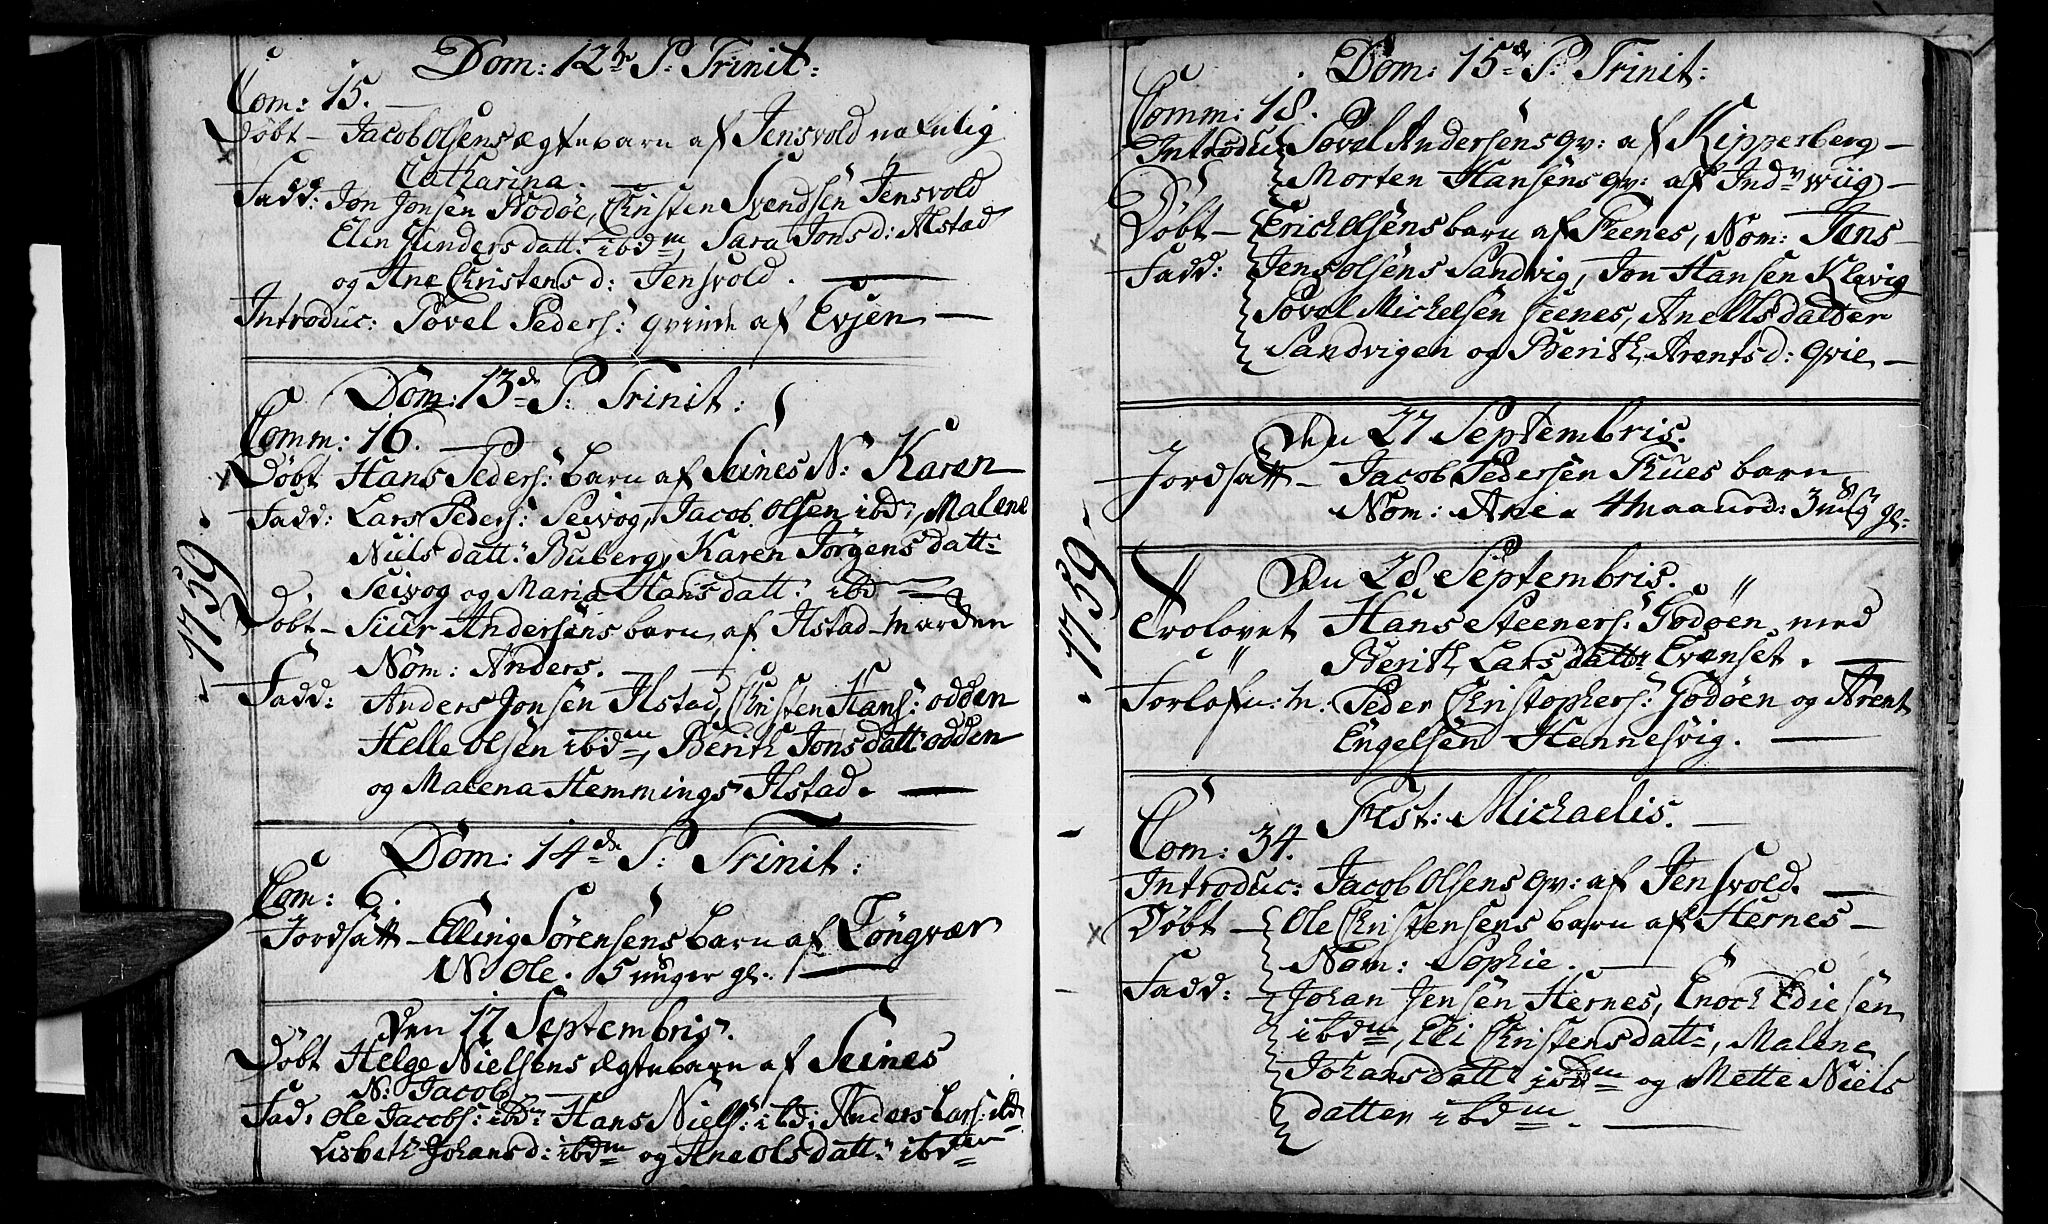 Dom: 12te P: Trinit:
Com: 15.
Døbt – Jacob Olsens ægtebarn af Jensvold nafnlig
Catharina.
Fadd: Jon Jonsen Kodøe, Christen Svendsen Jensvold
Elen Gundersdatt: ibdm Sara Jonsd: Alstad
og Ane Christensd: Jensvold.
Introduc: Povel Peders: qvinde af Evjen –
Dom: 13de P: Trinit:
Comm: 16.
Døbt Hans Peders: barn af Seines N: Karen
Fadd: Lars Peders: Seivog, Jacob Olsen ibd:, Malene
Nielsdatt: Buberg, Karen Jørgensdatt:
Seivog og Maria Hansdatt: ibdm
Døbt – Siur Andersens barn af Ilstad-marken
Nom: Anders.
Fadd: Anders Jonsen Ilstad, Christen Hans: odden
Helle Olsen ibdm, Berith Jonsdatt: odden
og Malena Hemmings Ilstad.
1759
Dom: 14de P: Trinit:
Com: 6.
Jordsatt – Elling Sørensens barn af Tøngvær
N: Ole. 5 uuger gl.
Den 17 Septembris.
Døbt Helge Nielsens ægtebarn af Seines
N: Jacob
Fad: Ole Jacobs: ibdm Hans Niels: ibd: Anders Lars: ibd
Lisbeth Johansd: ibdm og Ane Olsdatt: ibdem
Dom: 15de P: Trinit:
Comm: 18.
Introdu: Povel Andersens qv: af Kipperberg –
Morten Hansens qv: af Indr wiig –
Døbt – Erich Olsens barn af Feenes, Nom: Jens
Fadd: Jens Olsens Sandvig, Jon Hansen Klevig
Povel Michelsen Feenes, Ane Nilsdatter
Sandvigen og Berith Arentsd: Qvie –
Den 27 Septembris.
Jordsatt – Jacob Pedersen Rues barn
Nom: Ane. 4 maaned: 3 uug gl:
1759
Den 28 Septembris.
Trolovet Hans Steeners: Godøen med
Berith Larsdatter Evenset.
Forlofn: m: Peder Christophers: Godøen og Arent
Engelsen Hennesvig.
Fest: Michaelis.
Com: 34.
Introduc: Jacob Olsens qv: af Jensvold.
Døbt – Ole Christensens barn af Hernes –
Nom: Sophie.
Fadd: – Johan Jensen Hernes, Enoch Ediesen
ibdm, Eli Christensdatt:, Malene
Johansdatt: ibdm og Mette Niels
datter ibdm.